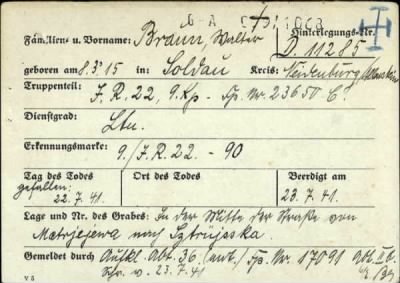 Familien- u. Vorname: Braun, Walter
Hinterlegungs-Nr.
D. 11285
geboren am 8.3.15 in: Soldau Kreis: Neidenburg
Truppenteil: J.R. 22, 9. Kp. - Fp. Nr. 23650 C.
Dienstgrad: Ltn.
Erkennungsmarke: 9./J.R. 22. - 90
Tag des Todes Ort des Todes Beerdigt am
gefallen:
22.7.41. 23.7.41.
Lage und Nr. des Grabes: In der Mitte der Straße von
Matrjejewa nach
Gemeldet durch Aufkl. Abt. 36. Fp. Nr. 17091 Abt. II
v. 23.7.41
V 5